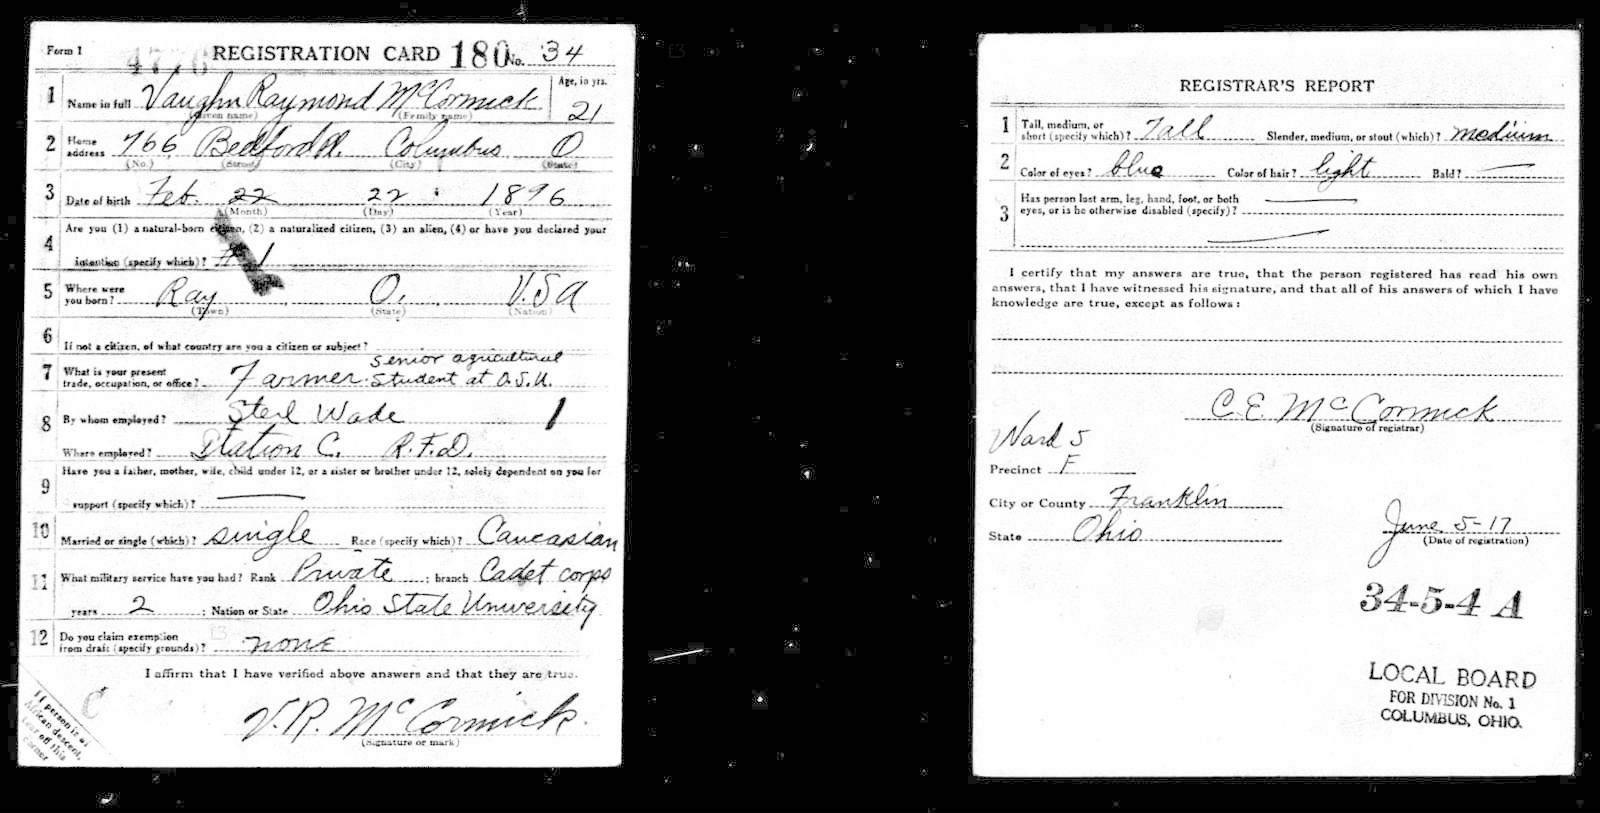 Form 1 4776 REGISTRATION CARD 180 No. 34
1 Name in full Vaughn Raymond McCormick Age, in yrs.
(Given name) (Family name) 21
2 Home address 766 Bedford Pl. Columbus O
(No.) (Street) (City) (State)
3 Date of birth Feb. 22 22 1896
(Month) (Day) (Year)
4 Are you (1) a natural-born citizen, (2) a naturalized citizen, (3) an alien, (4) or have you declared your
intention (specify which)? # 1
5 Where were you born? Ray O. U.S.A
(Town) (State) (Nation)
6 If not a citizen, of what country are you a citizen or subject?
senior agricultural
7 What is your present trade, occupation, or office? Farmer. student at O.S.U.
8 By whom employed? Wade 1
Where employed? Station C. R.F.D.
9 Have you a father, mother, wife, child under 12, or a sister or brother under 12, solely dependent on you for
support (specify which)?
10 Married or single (which)? single Race (specify which)? Caucasian
11 What military service have you had? Rank Private ; branch Cadet corps
years 2 ; Nation or State Ohio State University
12 Do you claim exemption from draft (specify grounds)? none
I affirm that I have verified above answers and that they are true.
C
V. R. McCormick
(Signature or mark)
If person is of
African descent,
tear off this
corner
REGISTRAR'S REPORT
1 Tall, medium, or short (specify which)? Tall Slender, medium, or stout (which)? medium
2 Color of eyes? blue Color of hair? light Bald? —
3 Has person lost arm, leg, hand, foot, or both
eyes, or is he otherwise disabled (specify)?
I certify that my answers are true, that the person registered has read his own
answers, that I have witnessed his signature, and that all of his answers of which I have
knowledge are true, except as follows:
C. E. McCormick
(Signature of registrar)
Ward 5
Precinct F
City or County Franklin
State Ohio
June 5-17
(Date of registration)
34-5-4 A
LOCAL BOARD
FOR DIVISION No. 1
COLUMBUS, OHIO.